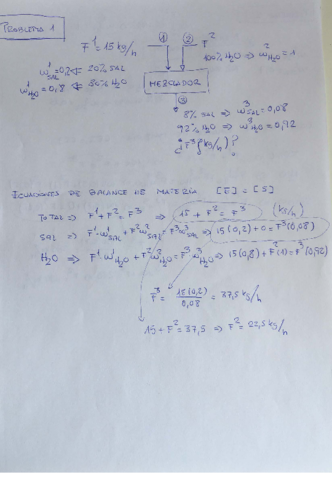 PROBLEMA 1
F¹ = 15 kg/h
① ② F²
100% H₂O ⇒ w²H₂O = 1
w¹SAL = 0,2 ⇐ 20% SAL
w¹H₂O = 0,8 ⇐ 80% H₂O
MEZCLADOR
③
* 8% SAL ⇒ w³SAL = 0,08
92% H₂O ⇒ w³H₂O = 0,92
¿F³ (kg/h)?
ECUACIONES DE BALANCE DE MATERIA [E] = [S]
TOTAL ⇒ F¹ + F² = F³ ⇒ 15 + F² = F³ (kg/h)
SAL ⇒ F¹w¹SAL + F²w²SAL = F³w³SAL ⇒ 15(0,2) + 0 = F³(0,08)
H₂O ⇒ F¹w¹H₂O + F²w²H₂O = F³w³H₂O ⇒ 15(0,8) + F²(1) = F³(0,92)
F³ = 15(0,2)/0,08 = 37,5 kg/h
15 + F² = 37,5 ⇒ F² = 22,5 kg/h